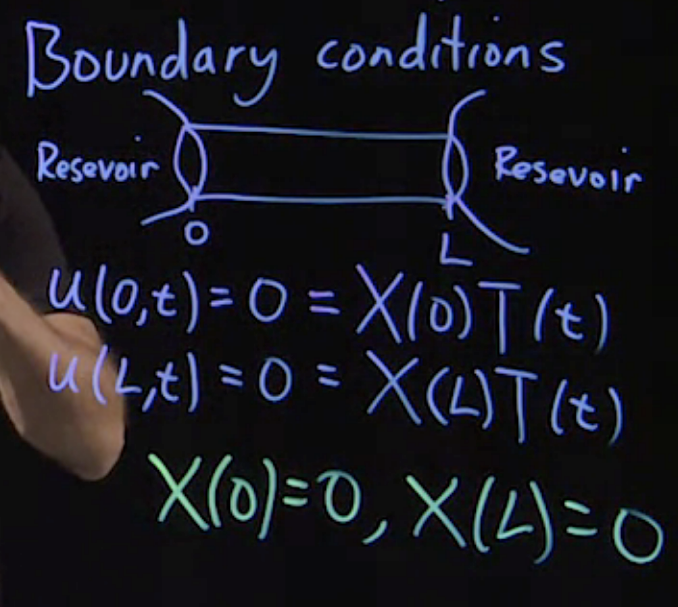 Boundary conditions
Resevoir Resevoir
0 L
u(0,t) = 0 = X(0)T(t)
u(L,t) = 0 = X(L)T(t)
X(0)=0, X(L)=0